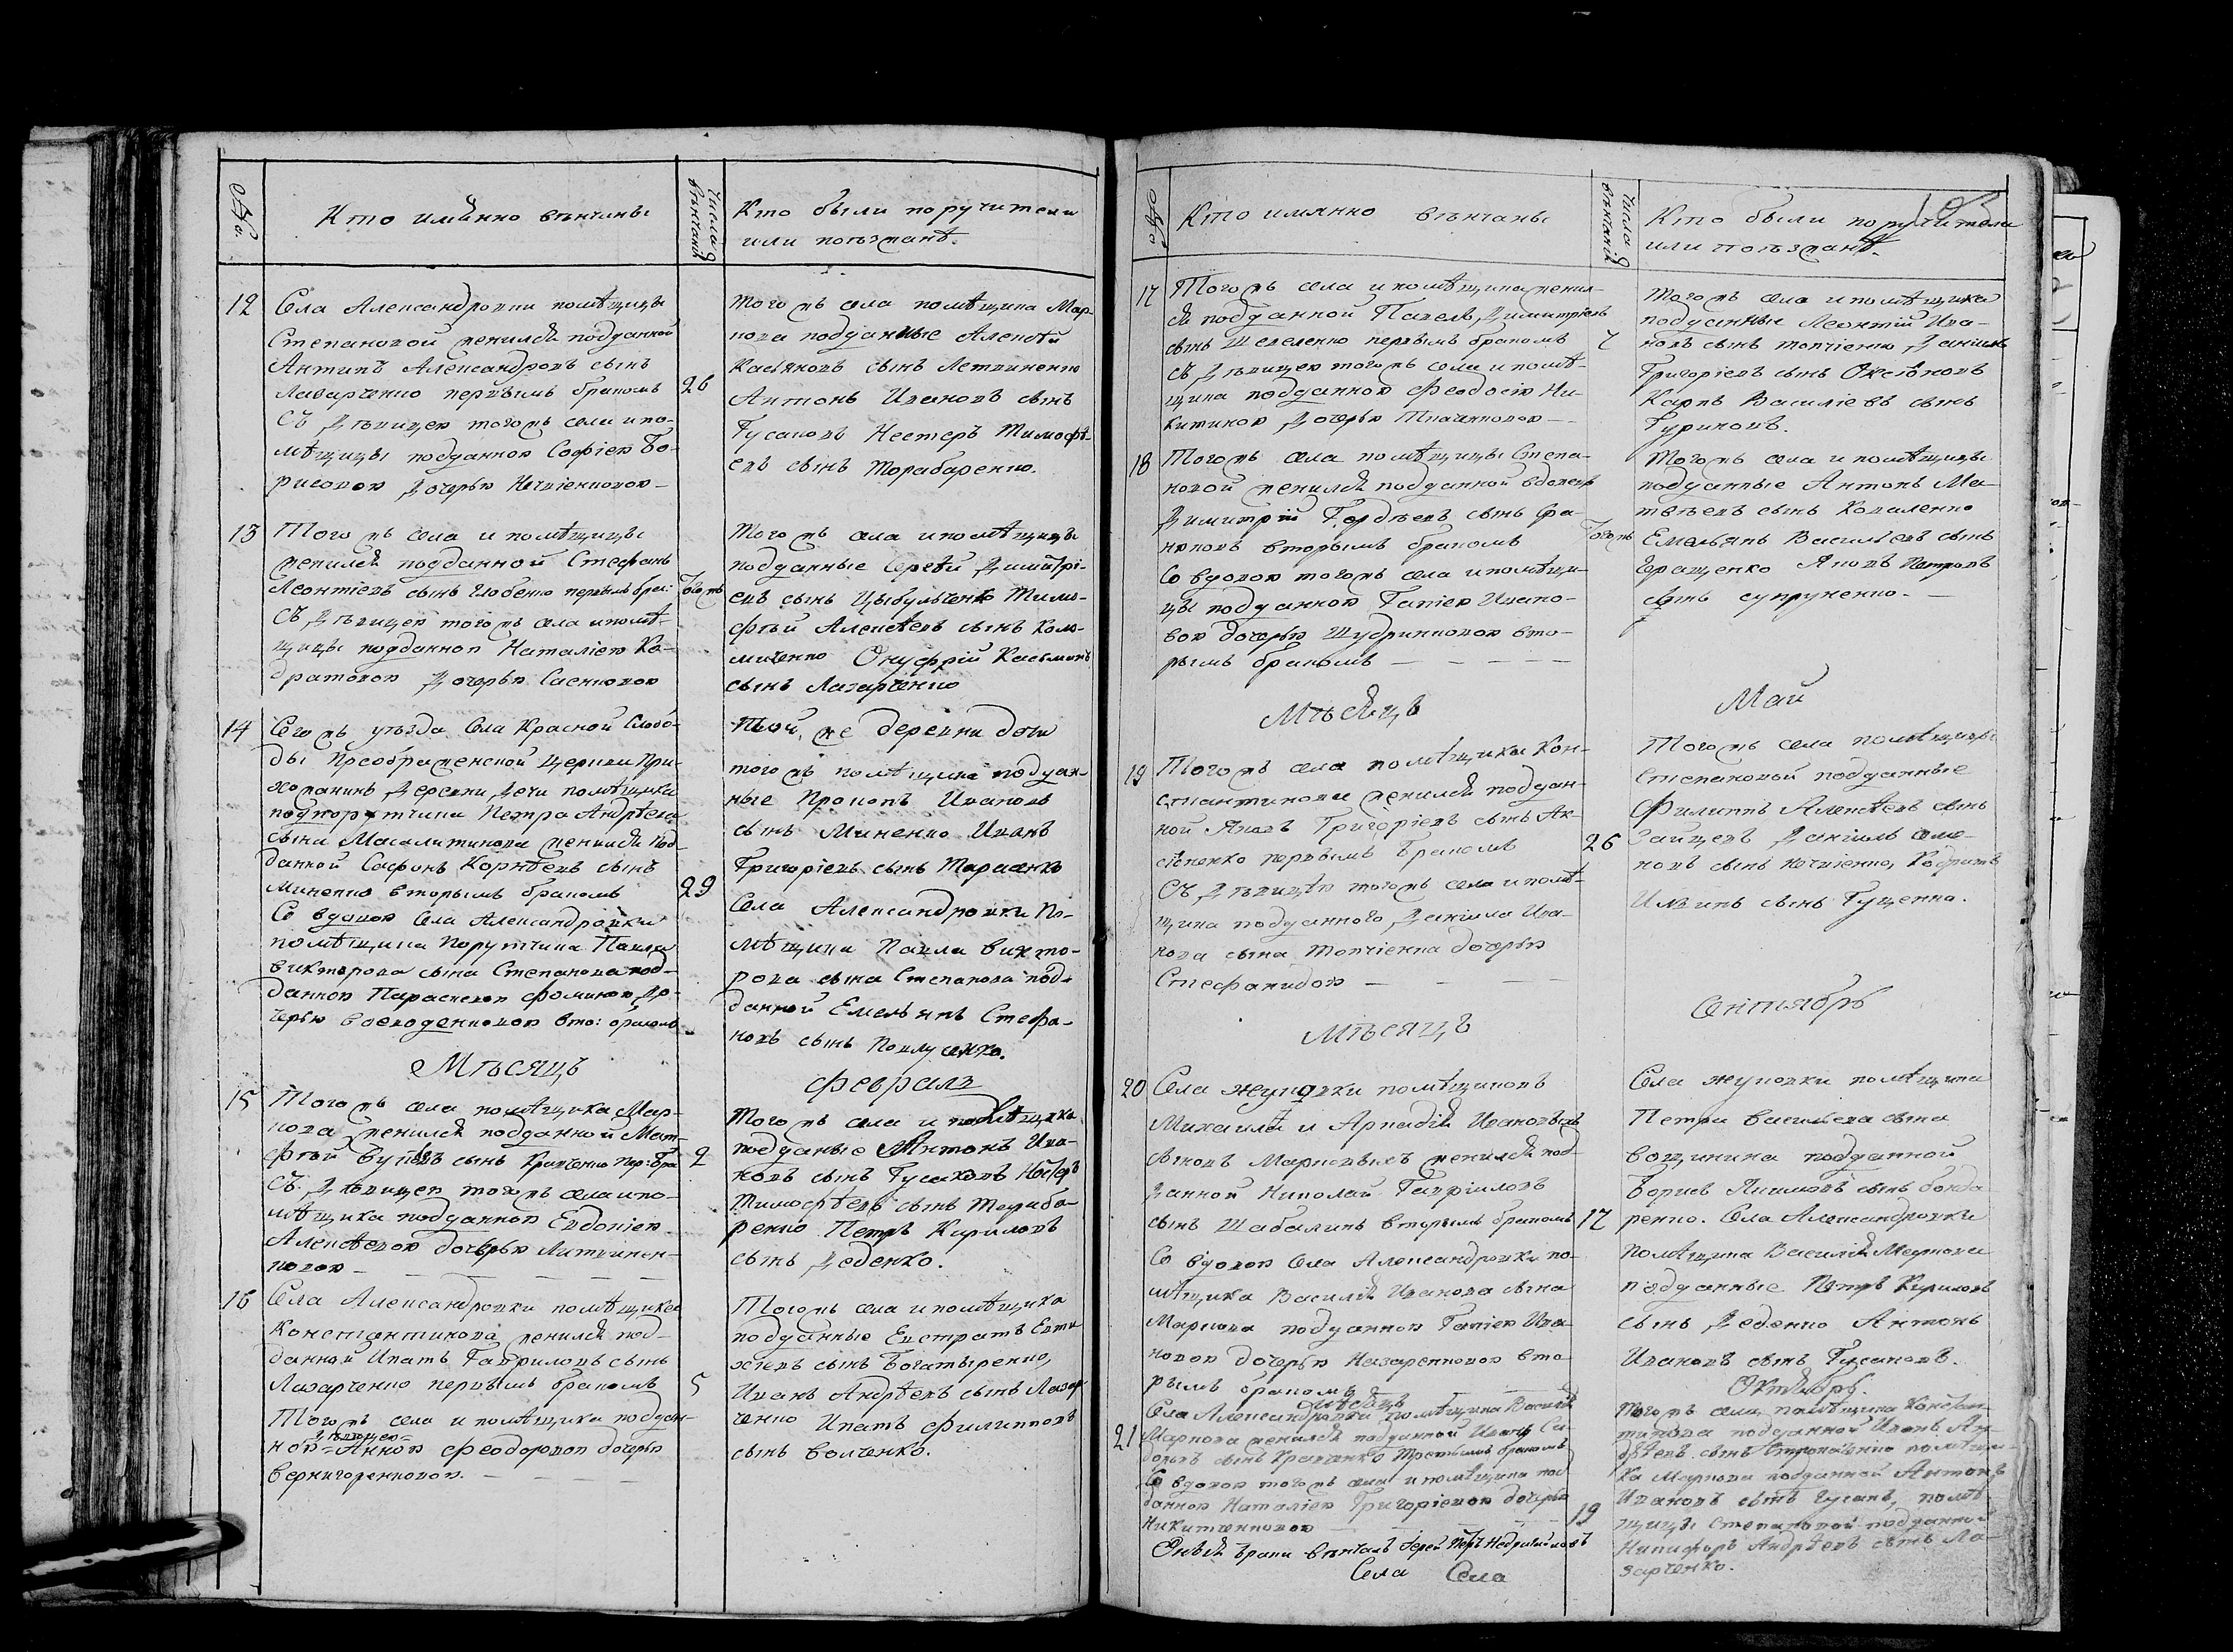 №.
Кто имянно венчаны
Числа венчанiя
Кто были поручители
или поезжанѣ.
12
Села Александровки помѣщицы
Степановой женился подданной
Антипъ Александровъ сынъ
Лазарченко первымъ бракомъ
Съ Дѣвицею тогожъ села и по-
мѣщицы подданною Софiею Бо-
рисовою дочерью Нечвiенковою
26
Тогожъ села помѣщика Мар-
кова подданные Алексѣй
Касьяновъ сынъ Летвиненко
Антонъ Ивановъ сынъ
Гусаковъ Нестеръ Тимофѣ-
евъ сынъ Торабаренко.
13
Тогожъ села и помѣщицы
женился подданной Стефанъ
Леонтiевъ сынъ первымъ бра:
Съ Дѣвицею тогожъ села и помѣ-
щицы подданною Наталiею Ко-
дратовою Дочерью Саенковою
Тогожъ
Тогожъ села и помѣщицы
подданные Сергѣй Димитрi-
евъ сынъ Цыбульченко Тимо-
фѣй Алексѣевъ сынъ Коло-
миченко Онуфрiй Касьяновъ
сынъ Лазарченко
14
Тогожъ уѣзда Села Красной Слобо-
ды Преображенской Церкви При-
хожанинъ Деревни Дочи помѣщика
подпорутчика Петра Андрѣева
сына Масалитинова женился под-
данной Софонъ Корнѣевъ сынъ
Миненко вторымъ бракомъ
Со вдовою Села Александровки
помѣщика Порутчика Павла
Викторова сына Степанова под-
данною Параскевою Фоминою До-
черью вто: бракомъ
29
Той, же деревни дочи
тогожъ помѣщика поддан-
ные Прокопъ Ивановъ
сынъ Миненко Иванъ
Григорiевъ сынъ Тарасенко
Села Александровки По-
мѣщика Павла Викто-
рова сына Степанова под-
данной Емельянъ Стефа-
новъ сынъ Павлусенко.
Мѣсяцъ
Февраля
15
Тогожъ села помѣщика Мар-
кова женился подданной Мат-
фѣй сынъ Кравченко пер: бра
Съ Дѣвицею тогожъ села и по-
мѣщика подданною Евдокiею
Алексѣевою дочерью Литвинен-
ковою
2
Тогожъ села и помѣщика
подданые Антонъ Ива-
новъ сынъ Гусаковъ Нестеръ
Тимофѣевъ сынъ Тараба-
ренко Петръ Кириловъ
сынъ Деденко.
16
Села Александровки помѣщика
Константинова женился под-
данной Ипатъ Гавриловъ сынъ
Лазарченко первымъ бракомъ
Тогожъ села и помѣщика поддан-
дѣвицею=
ною=Анною Феодоровою дочерью
Вернигоренковою.
5
Тогожъ села и помѣщика
подданные Евстратъ Евти-
хiевъ сынъ Богатыренко,
Иванъ Андрѣевъ сынъ Лазар-
ченко Ипатъ Филиповъ
сынъ Волченко.
№
Кто имянно венчаны
Числа венчанiя
Кто были поручители
или поезжанѣ.
17
Тогожъ села и помѣщика женил-
ся подданной Павелъ Димитрiевъ
сынъ Шевеленко первымъ бракомъ
Съ Дѣвицею тогожъ села и помѣ-
щика подданною Феодосiею Ни-
китиною Дочерью Ткаченковою
7
Тогожъ села и помѣщика
подданные Леонтiй Ива-
новъ сынъ Топчiенко Данiилъ
Григорiевъ сынъ Оксiоновъ
Карпъ Василiевъ сынъ
Гуриновъ.
18
Тогожъ села помѣщицы Степа-
новой женился подданной вдовецъ
Димитрiй Гордѣевъ сынъ
вторымъ бракомъ
Со вдовою тогожъ села и помѣщи-
цы подданною Гапiею Ивано-
вою дочерью Шудринковою вто-
рымъ бракомъ
Тогожъ
Тогожъ села и помѣщицы
подданные Антонъ Ма-
твѣевъ сынъ Коваленко
Емельянъ Васильевъ сынъ
Геращенко Яковъ Петровъ
сынъ Супруненко.
Мѣсяцъ
Май
19
Тогожъ села помѣщика Кон-
стантинова женился поддан-
ной Яковъ Григорiевъ сынъ Ак-
сѣненко первымъ бракомъ
Съ Дѣвицею тогожъ села и помѣ-
щика подданного Данiила Ива-
нова сына Топчiенка дочерью
Стефанидою
26
Тогожъ села помѣщицы
Степановой подданные
Филиппъ Алексѣевъ сынъ
Зайцевъ Данiилъ Семе-
новъ сынъ Нечвiенко, Кодратъ
Илiинъ сынъ Гущенко.
Мѣсяцъ
Сентябрь
20
Села Жуковки помѣщиковъ
Михаила и Аркадiя Ивановыхъ
сыновъ Марковыхъ женился под-
данной Николай Гаврiиловъ
сынъ Шабалинъ вторымъ бракомъ
Со вдовою Села Александровки по-
мѣщика Василiя Иванова сына
Маркова подданною Гапiею Ива-
новою дочерью Назаренковою вто-
рымъ бракомъ
17
Села Жуковки помѣщика
Петра Васильева сына
Вощинина подданной
Борисъ Якимовъ сынъ Бонда-
ренко. Села Александровки
Помѣщика Василiя Маркова
подданные Петръ Кириловъ
сынъ Деденко Антонъ
Ивановъ сынъ Гусаковъ.
Мѣсяцъ
Октябрь.
21
Села Александровки помѣщика Василiя
Маркова женился подданной Иванъ Си-
доровъ сынъ Кравченко Третьимъ бракомъ
Со вдовою тогожъ села и помѣщика под-
данною Наталiею Григорiевою дочерью
Никитенковою
19
Тогожъ села помѣщика Констан-
тинова подданной Иванъ Ан-
дрѣевъ сынъ помѣщи-
ка Маркова подданной Антонъ
Ивановъ сынъ Гусакъ, помѣ-
щицы Степановой подданной
Никифоръ Андрѣевъ сынъ Ла-
зарченко.
Онѣя браки венчалъ Iерей Петръ
Села Села